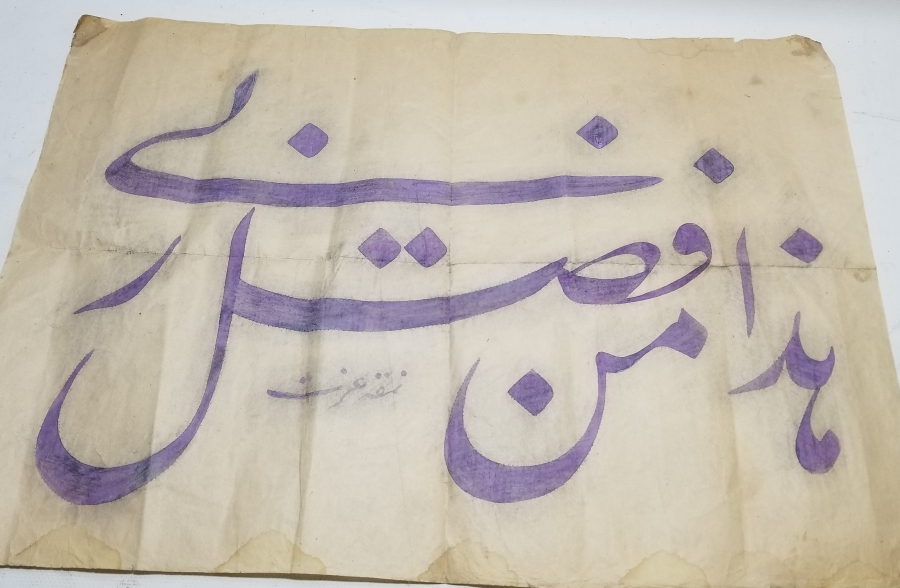 هذا من فضل ربي
نمقه عزت